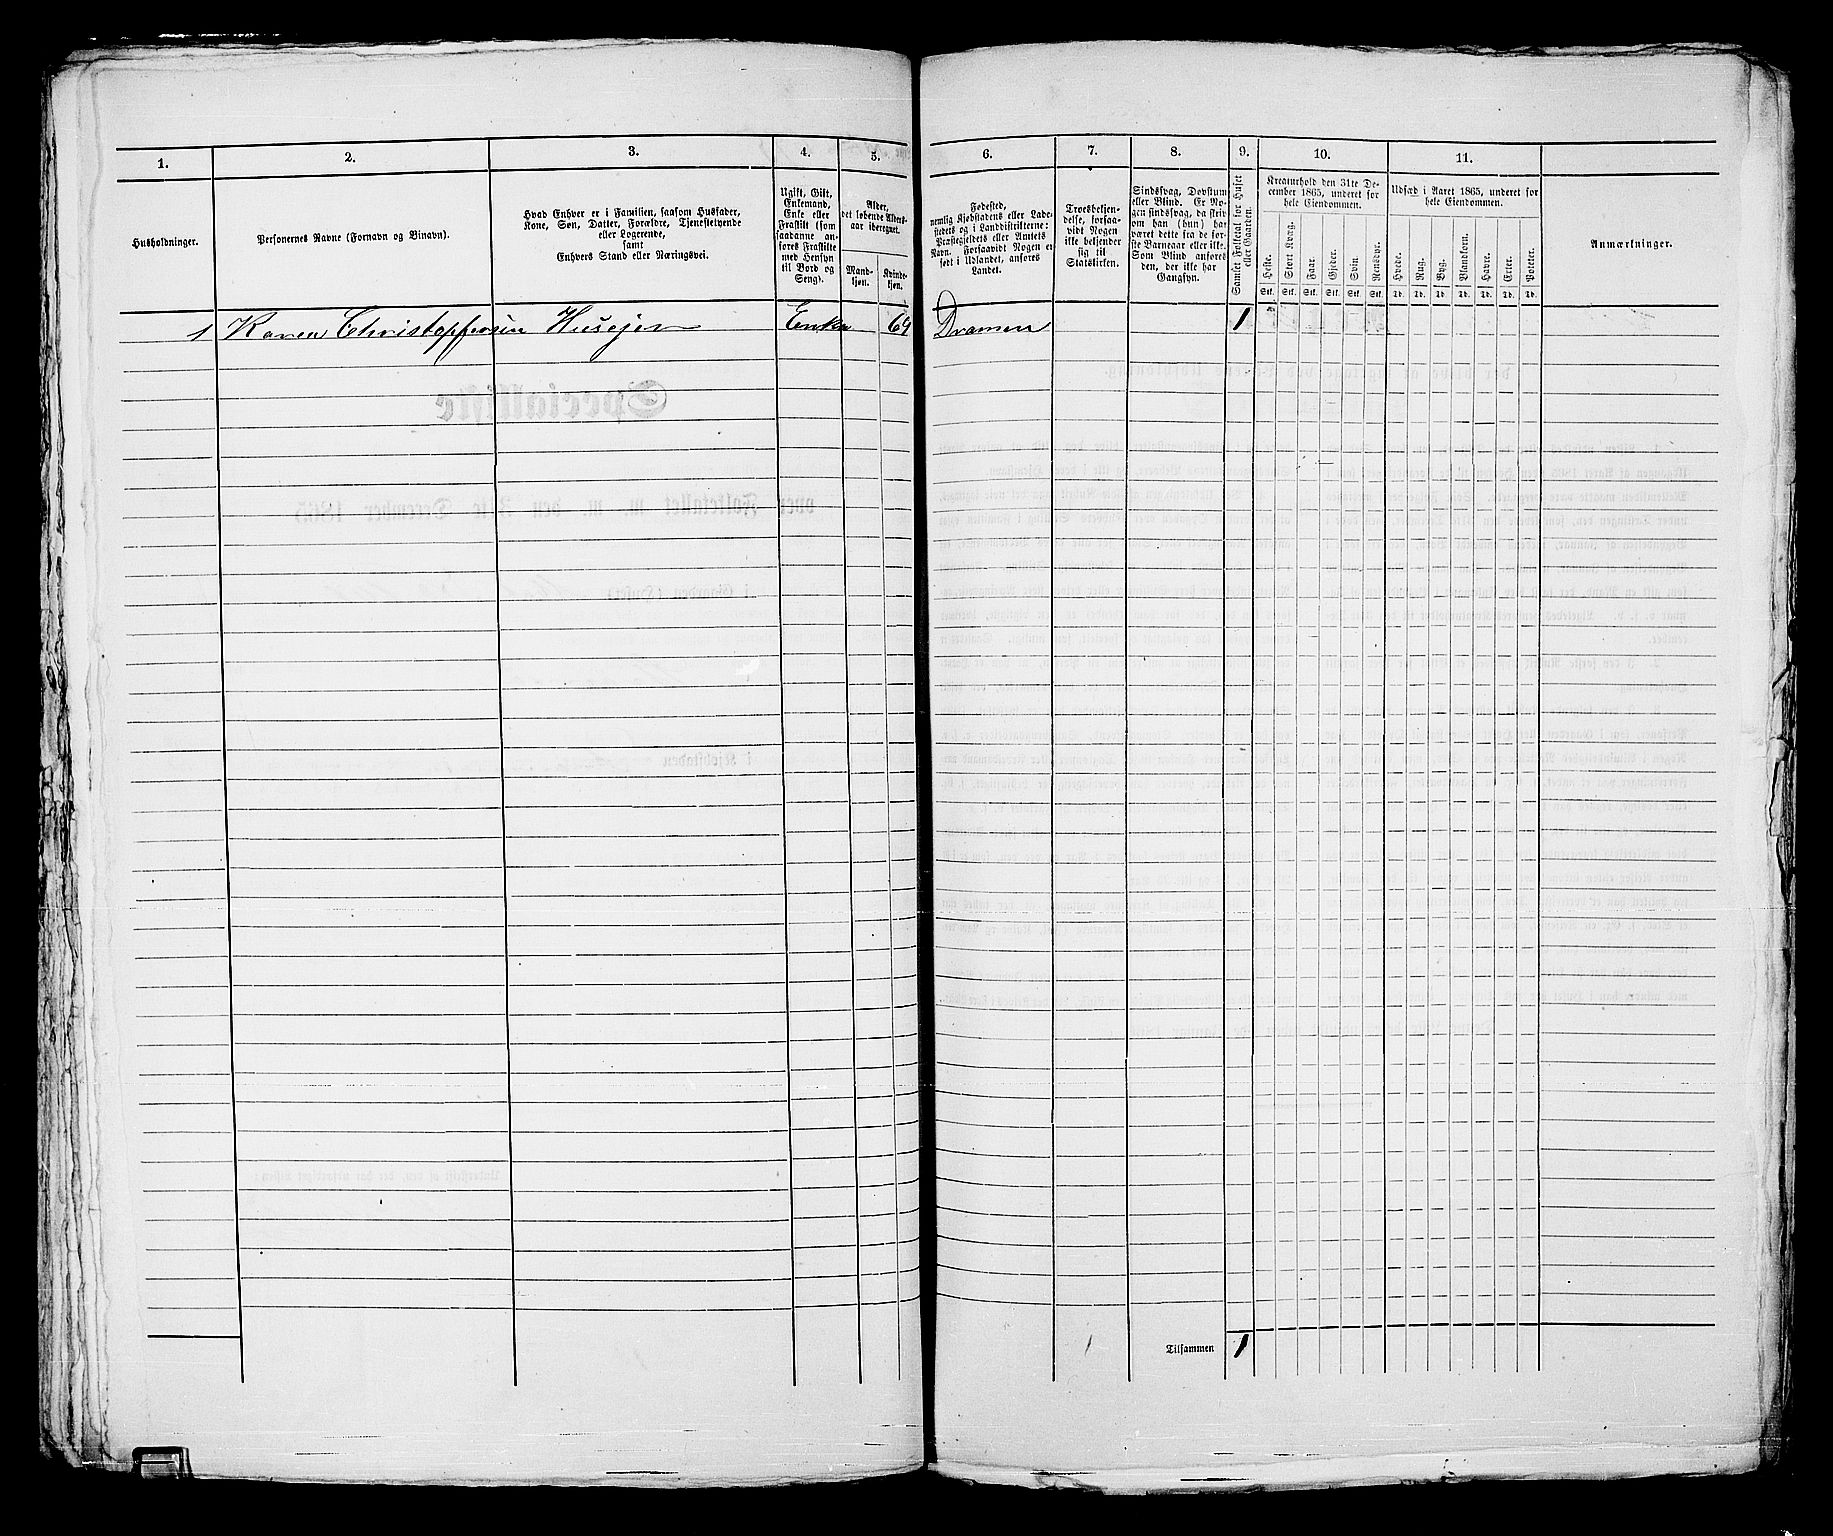 1. 2. 3. 4. 5. 6. 7. 8. 9. 10. 11.
Husholdninger.
Personernes Navne (Fornavn og Binavn).
Hvad Enhver er i Familien, saasom Husfader,
Kone, Søn, Datter, Forældre, Tjenestetyende
eller Logerende,
samt
Enhvers Stand eller Næringsvei.
Ugift, Gift,
Enkemand,
Enke eller
Fraskilt (som
saadanne an-
føres Fraskilte
med Hensyn
til Bord og
Seng).
Alder,
det løbende Alders-
aar iberegnet.
Mand-
kjøn.
Kvinde-
kjøn.
Fødested,
nemlig Kjøbstadens eller Lade-
stedets og i Landdistrikterne:
Præstegjeldets eller Amtets
Navn. Forsaavidt Nogen er
født i Udlandet, anføres
Landet.
Troesbekjen-
delse, forsaa-
vidt Nogen
ikke bekjender
sig til
Statskirken.
Sindssvag, Døvstum
eller Blind. Er No-
gen sindssvag, da skriv
om han (hun) har
været dette fra de før-
ste Barneaar eller ikke.
Som Blind anføres
den, der ikke har
Gangsyn.
Samlet Folketal for Huset
eller Gaarden.
Kreaturhold den 31te De-
cember 1865, underet for
hele Eiendommen.
Heste.
Stort Kvæg.
Faar.
Gjeder.
Svin.
Rensdyr.
Stk. Stk. Stk. Stk. Stk. Stk.
Udsæd i Aaret 1865, underet for
hele Eiendommen.
Hvede.
Rug.
Byg.
Blandkorn.
Havre.
Erter.
Poteter.
Td. Td. Td. Td. Td. Td. Td.
Anmærkninger.
1 Karen Christophersen Husejer Enke 69 Dramen 1
Tilsammen 1